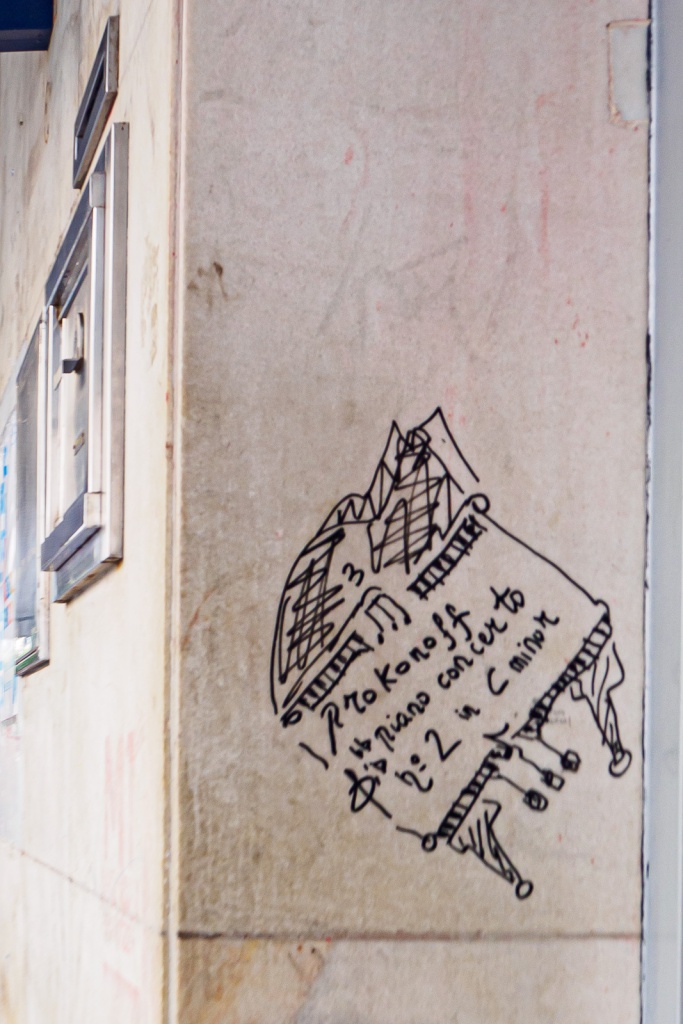 Prokonoff
piano concerto
nº 2 in C minor